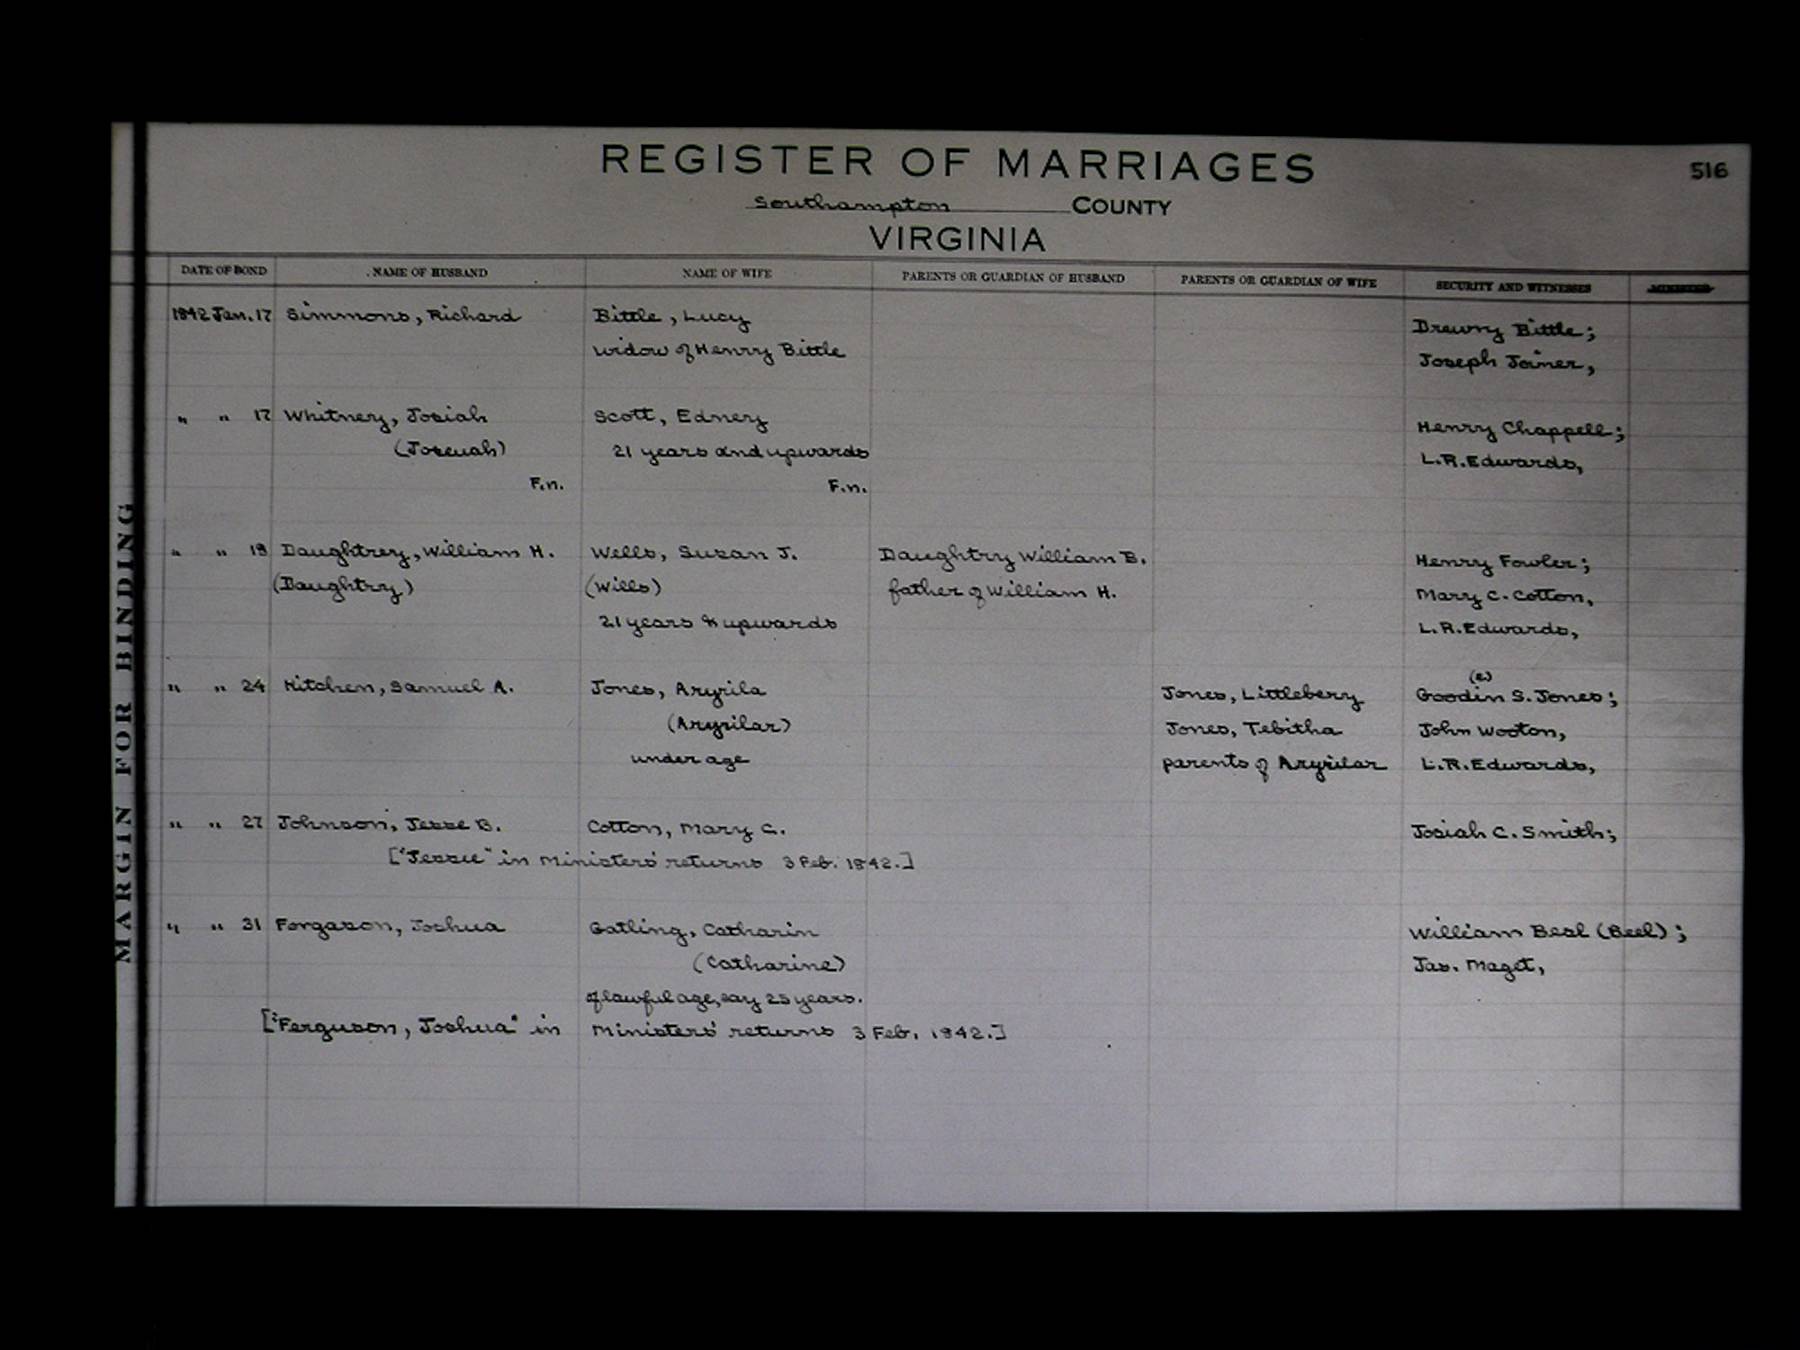 REGISTER OF MARRIAGES
516
Southampton COUNTY
VIRGINIA
DATE OF BOND NAME OF HUSBAND NAME OF WIFE PARENTS OR GUARDIAN OF HUSBAND PARENTS OR GUARDIAN OF WIFE SECURITY AND WITNESSES MINISTER
1842 Jan. 17 Simmons, Richard Bittle, Lucy Drewry Bittle;
widow of Henry Bittle Joseph Joiner,
" " 17 Whitney, Josiah Scott, Edney Henry Chappell;
(Joseuah) 21 years and upwards L.R. Edwards,
F.n. F.n.
" " 19 Daughtrey, William H. Wells, Susan J. Daughtry William B. Henry Fowler;
(Daughtry) (Wills) father of William H. Mary C. Cotton,
21 years & upwards L.R. Edwards,
(e)
" " 24 Kitchen, Samuel A. Jones, Aryrila Jones, Littleberry Goodin S. Jones;
(Aryrilar) Jones, Tebitha John Wooton,
under age parents of Aryrilar L.R. Edwards,
" " 27 Johnson, Jesse B. Cotton, Mary C. Josiah C. Smith;
["Jessie" in Ministers' returns 3 Feb. 1842.]
" " 31 Forgason, Joshua Gatling, Catharin William Beal (Beel);
(Catharine) Jas. Maget,
of lawful age, say 25 years.
["Ferguson, Joshua" in Ministers' returns 3 Feb. 1842.]
MARGIN FOR BINDING